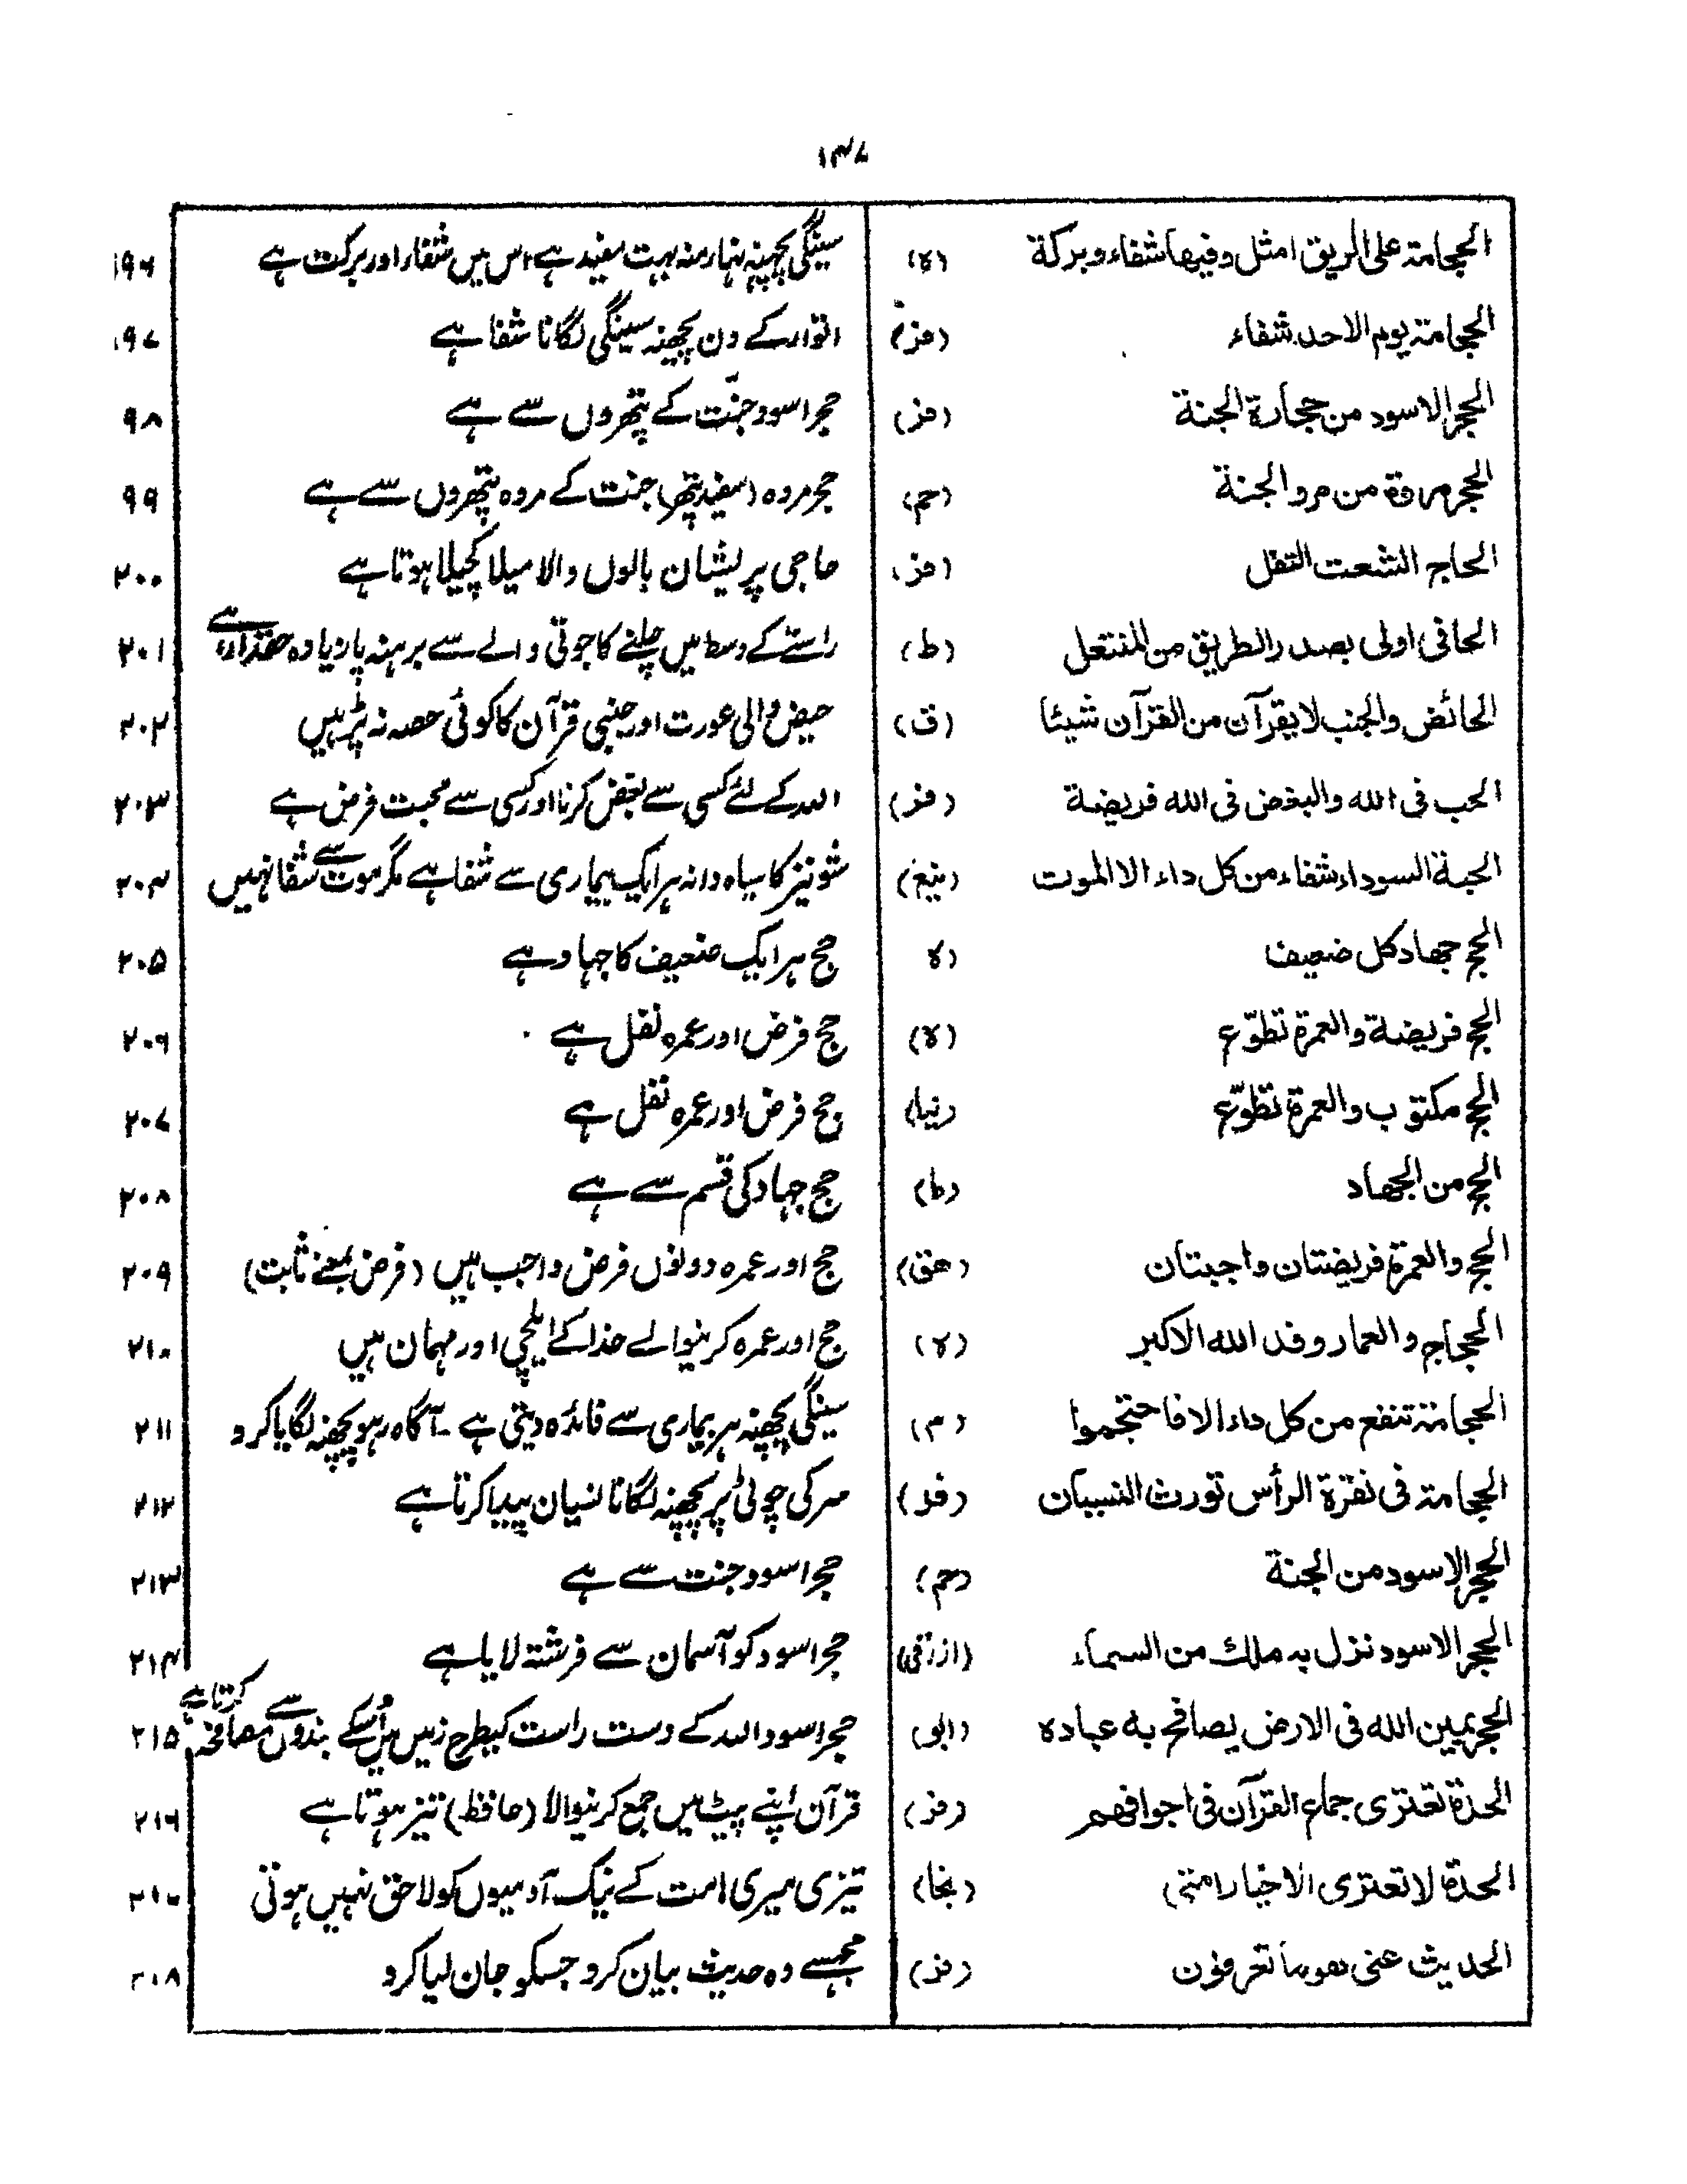 ۱۴۷
الحجامة على الريق امثل وفيها شفاء وبركة (ه) سینگی پچھنہ نہار منہ بہت مفید ہے اس میں شفاء اور برکت ہے ۱۹۶
الحجامة يوم الاحد شفاء (فر) اتوار کے دن پچھنہ سینگی لگانا شفا ہے ۱۹۷
الحجر الاسود من حجارة الجنة (فر) حجر اسود جنّت کے پتھروں سے ہے ۹۸
الحجر مروة من مرو الجنة (حم) حجر مروہ (سفید پتھر) جنت کے مروہ پتھروں سے ہے ۹۹
الحاج الشعث التفل (فر) حاجی پریشان بالوں والا میلا کچیلا ہوتا ہے ۲۰۰
الحافى اولى بصدر الطريق من المنتعل (ط) راستے کے وسط میں چلنے کا جوتی والے سے برہنہ پا زیادہ حقدار ہے ۲۰۱
الحائض والجنب لا يقرآن من القرآن شيئا (ت) حیض والی عورت اور جنبی قرآن کا کوئی حصہ نہ پڑہیں ۲۰۲
الحب فى الله والبغض فى الله فريضة (فر) اللہ کے لئے کسی سے بغض کرنا اور کسی سے محبت فرض ہے ۲۰۳
الحبة السوداء شفاء من كل داء الا الموت شونیز کا سیاہ دانہ ہر ایک بیماری سے شفا ہے مگر موت سے شفا نہیں ۲۰۴
الحج جهاد كل ضعيف (ه حج ہر ایک ضعیف کا جہاد ہے ۲۰۵
الحج فريضة والعمرة تطوّع (ه) حج فرض اور عمرہ نفل ہے ۲۰۶
الحج مكتوب والعمرة تطوّع حج فرض اور عمرہ نفل ہے ۲۰۷
الحج من الجهاد (ط) حج جہاد کی قسم سے ہے ۲۰۸
الحج والعمرة فريضتان واجبتان (هق) حج اور عمرہ دونوں فرض واجب ہیں (فرض بمعنے ثابت) ۲۰۹
الحجاج والعمار وفد الله الاكبر (ه) حج اور عمرہ کرنیوالے خدا کے ایلچی اور مہمان ہیں ۲۱۰
الحجامة تنفع من كل داء الا فاحتجموا (م) سینگی پچھنہ ہر بیماری سے فائدہ دیتی ہے - آگاہ رہو پچھنہ لگایا کرو ۲۱۱
الحجامة فى نقرة الرأس تورث النسيان (فر) سر کی چوٹی پر پچھنہ لگانا نسیان پیدا کرتا ہے ۲۱۲
الحجر الاسود من الجنة (حم) حجر اسود جنت سے ہے ۲۱۳
الحجر الاسود نزل به ملك من السماء (ازرقی) حجر اسود کو آسمان سے فرشتہ لایا ہے ۲۱۴
الحجر يمين الله فى الارض يصافح به عباده (ابو) حجر اسود اللہ کے دست راست کیطرح زمیں میں اُسکے بندوں سے مصافحہ کرتا ہے ۲۱۵
الحدة تعترى جماع القرآن فى اجوافهم (فر) قرآن اپنے پیٹ میں جمع کرنیوالا (حافظ) تیز ہوتا ہے ۲۱۶
الحدة لا تعترى الا خيار امتى تیزی میری امت کے نیک آدمیوں کو لاحق نہیں ہوتی
الحديث عنى هو ما تعرفون (فر) مجھسے وہ حدیث بیان کرو جسکو جان لیا کرو ۲۱۸